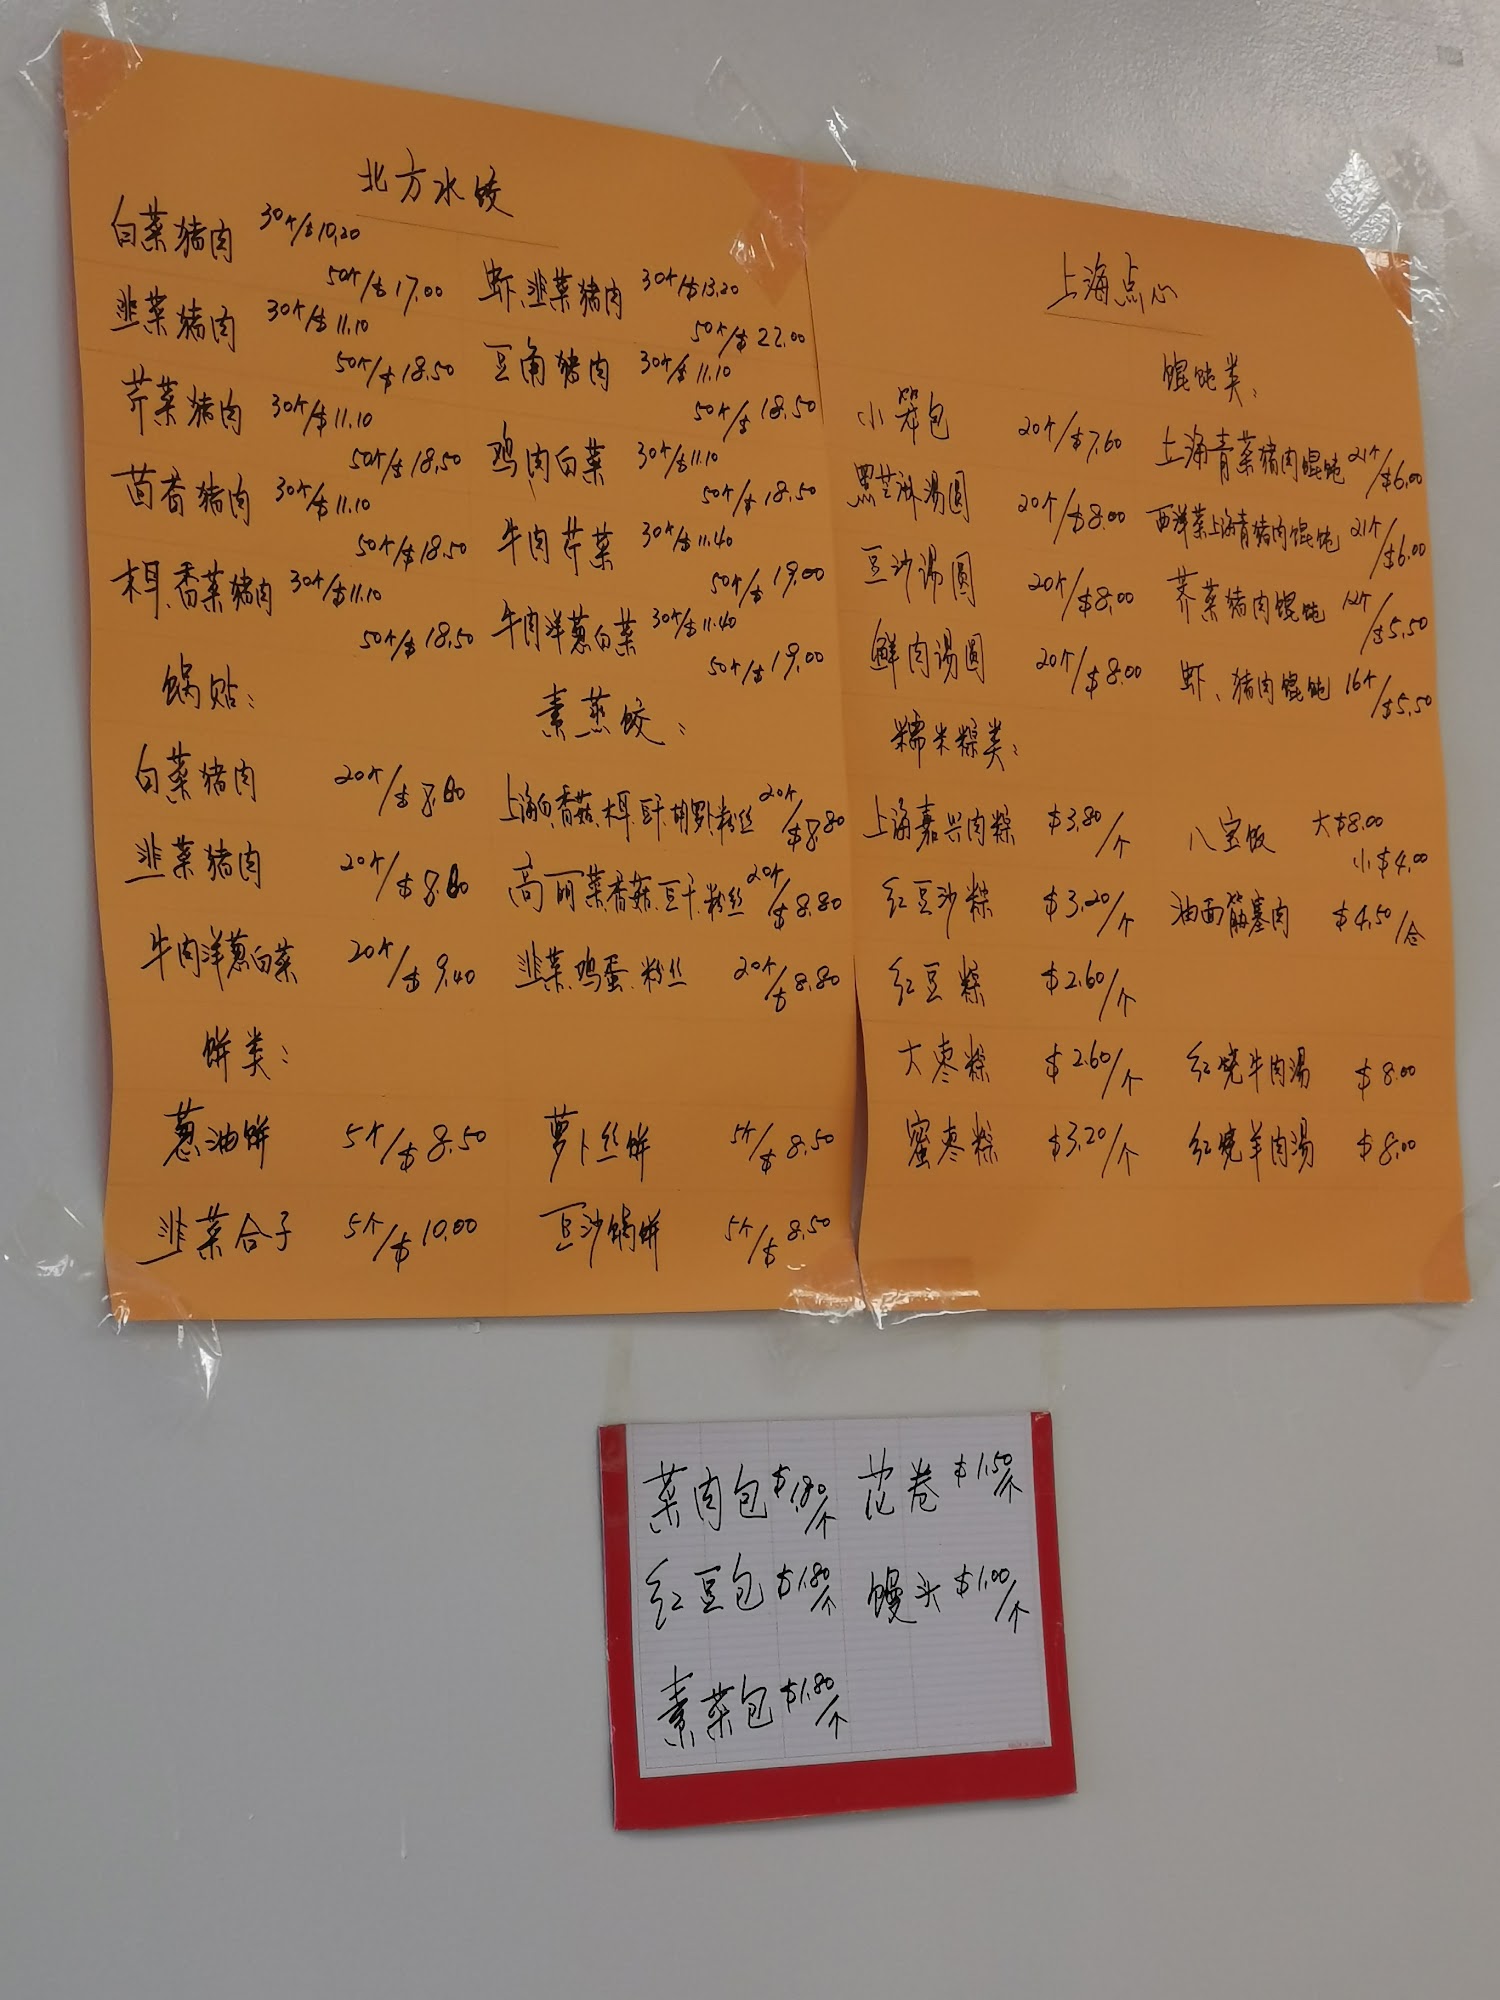 北方水饺
白菜猪肉 30个/$10.20
50个/$17.00
韭菜猪肉 30个/$11.10
50个/$18.50
芹菜猪肉 30个/$11.10
50个/$18.50
茴香猪肉 30个/$11.10
50个/$18.50
木耳、香菜猪肉 30个/$11.10
50个/$18.50
虾、韭菜猪肉 30个/$13.20
50个/$22.00
豆角猪肉 30个/$11.10
50个/$18.50
鸡肉白菜 30个/$11.10
50个/$18.50
牛肉芹菜 30个/$11.40
50个/$19.00
牛肉洋葱白菜 30个/$11.40
50个/$19.00
锅贴：
白菜猪肉 20个/$8.80
韭菜猪肉 20个/$8.80
牛肉洋葱白菜 20个/$9.40
素蒸饺：
上海白、香菇、木耳、豆干、胡萝卜、粉丝 20个/$8.80
高丽菜、香菇、豆干、粉丝 20个/$8.80
韭菜、鸡蛋、粉丝 20个/$8.80
饼类：
葱油饼 5个/$8.50
韭菜合子 5个/$10.00
萝卜丝饼 5个/$8.50
豆沙锅饼 5个/$8.50
上海点心
小笼包 20个/$7.60
黑芝麻汤圆 20个/$8.00
豆沙汤圆 20个/$8.00
鲜肉汤圆 20个/$8.00
馄饨类：
上海青菜猪肉馄饨 21个/$6.00
西洋菜上海青猪肉馄饨 21个/$6.00
荠菜猪肉馄饨 12个/$5.50
虾、猪肉馄饨 16个/$5.50
糯米粽类：
上海嘉兴肉粽 $3.80/个
红豆沙粽 $3.20/个
红豆粽 $2.60/个
大枣粽 $2.60/个
蜜枣粽 $3.20/个
八宝饭 大$8.00
小$4.00
油面筋塞肉 $4.50/合
红烧牛肉汤 $8.00
红烧羊肉汤 $8.00
菜肉包 $1.80/个
红豆包 $1.80/个
素菜包 $1.80/个
花卷 $1.50/个
馒头 $1.00/个